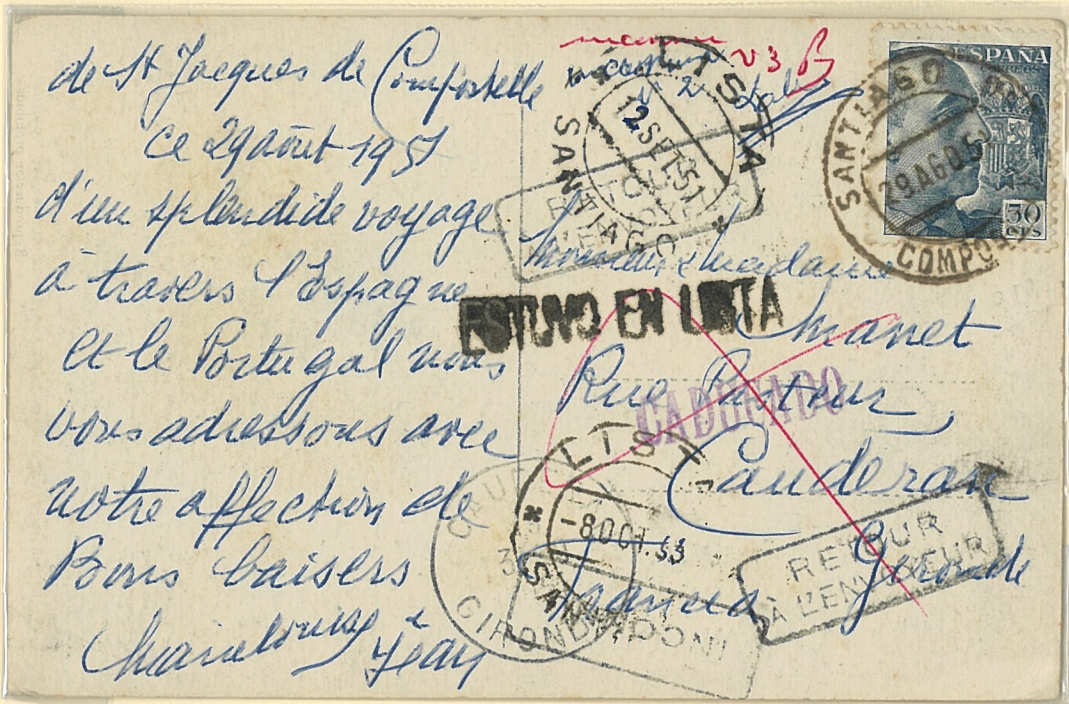 de St Jacques de Compostelle
ce 29 août 1951
d'un splendide voyage
à travers l'Espagne
et le Portugal nous
vous adressons avec
notre affection de
Bons baisers
Marielouise
Jean
inconnu
V3 B
LISTA
12 SET. 51
SANTIAGO
RETOUR
À L'ENVOYEUR
ESPAÑA
CORREOS
30
CTS
SANTIAGO DE
29 AGO. 51
COMPOSTELA
Monsieur & madame
ESTUVO EN LISTA
Manet
Rue Pasteur
CADUCADO
Cauderan
Gironde
LISTA
-8 OCT. 53
SANTIAGO
CAUDERAN
GIRONDE
RETOUR
À L'ENVOYEUR